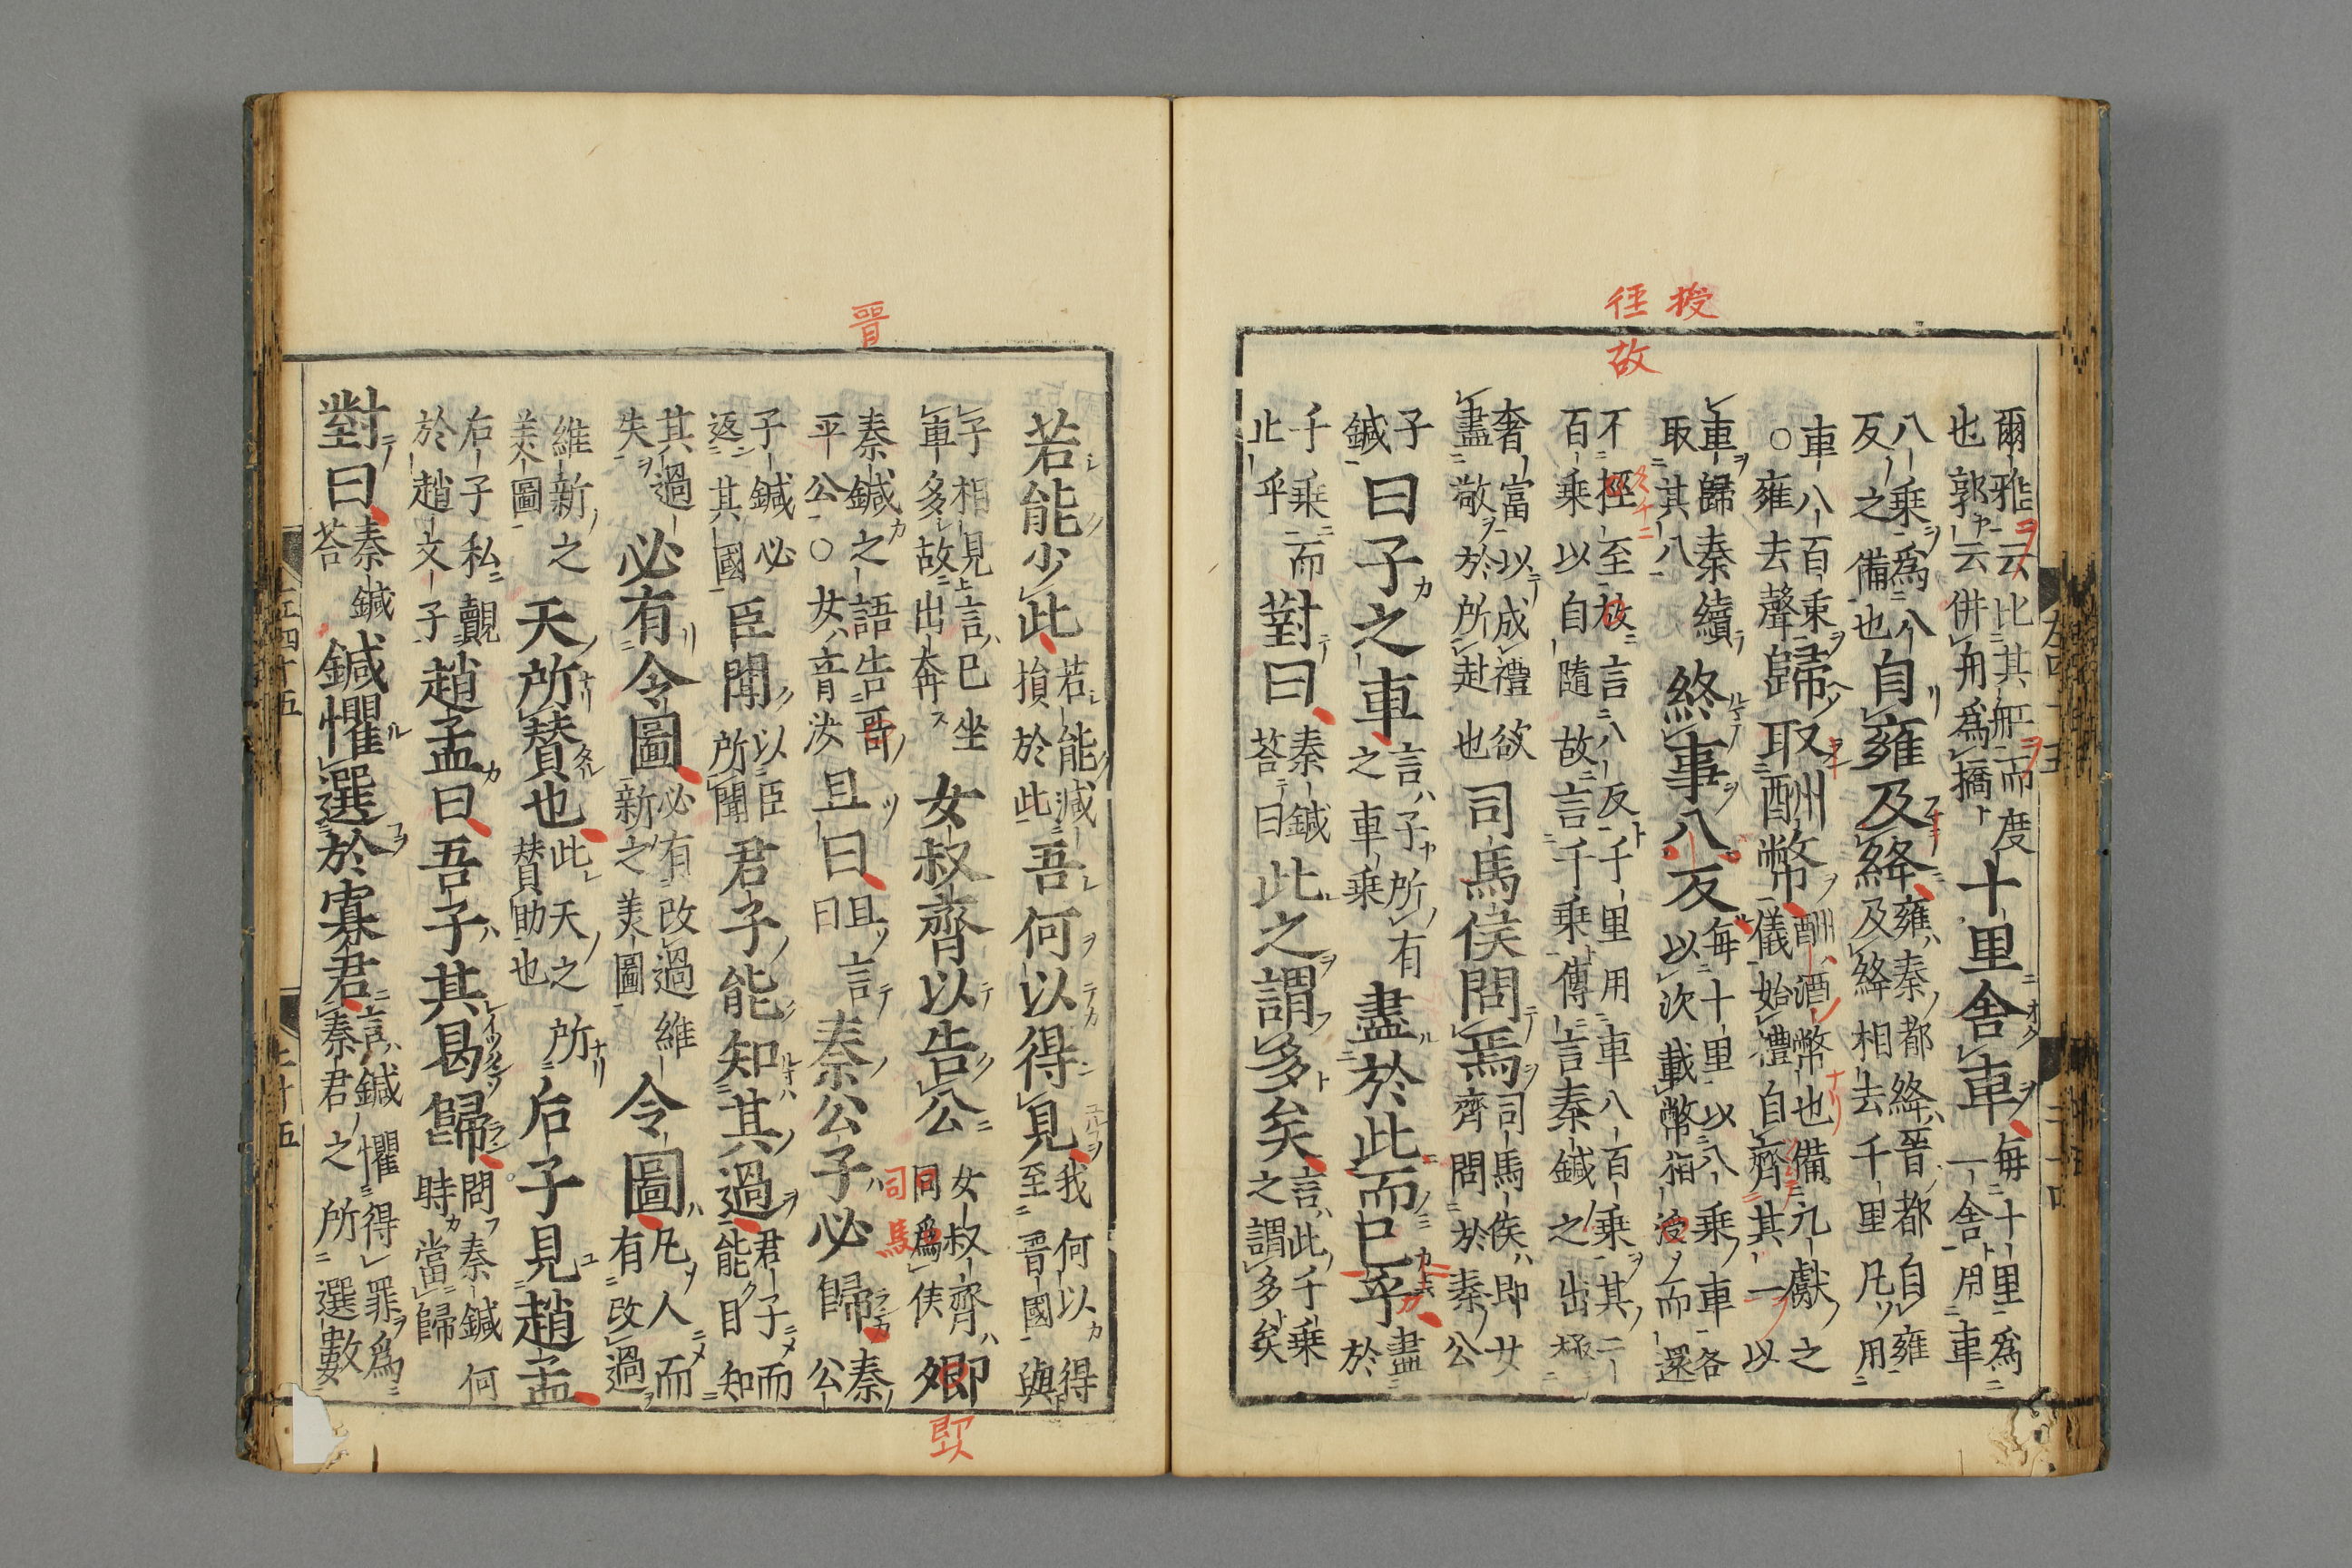 爾雅云比其舡而度
也郭云併舟為橋
十里舍車
每十里為
一舍用車
八乘為八
反之備也
自雍及絳
雍秦都絳晉都自雍
及絳相去千里凡用
車八百乗
○雍去聲
歸取酬幣
酬酒幣也備九獻之
儀始禮自齊其一以
車歸秦續
取其八
終事八反
每十里以八乘車各
以次載幣相授而還
不徑至故言八反千里用車八百乗其二
百乗以自隨故言千乗傳言秦鍼之出極
奢富以成禮欲
盡敬於所赴也
司馬侯問焉
司馬侯即女
齊問於秦公
子
鍼
曰子之車
言子所有
之車乗
盡於此而已乎
盡
於
千乗
止乎
而對曰
秦鍼
荅曰
此之謂多矣
言此千乗
之謂多矣
若能少此
若能減
損於此
吾何以得見
我何以得
至晉國與
子相見言已坐
車多故出奔
女叔齊以告公
女叔齊即
同為侯
卿
秦鍼之語告哥
平公○女音汝
且曰
且言
曰
秦公子必歸
秦
公
子鍼必
返其國
臣聞
以臣
所聞
君子能知其過
君子而
能自知
其過
失
必有令圖
必有改過維
新之美圖
令圖
凡人而
有改過
維新之
美圖
天所賛也
此天之所
賛助也
后子見趙孟
后子私覿
於趙文子
趙孟曰吾子其曷歸
問秦鍼何
時當歸
對曰
秦鍼
荅
鍼懼選於寡君
言鍼懼得罪為
秦君之所選數
授
徑
故
晉
同
馬